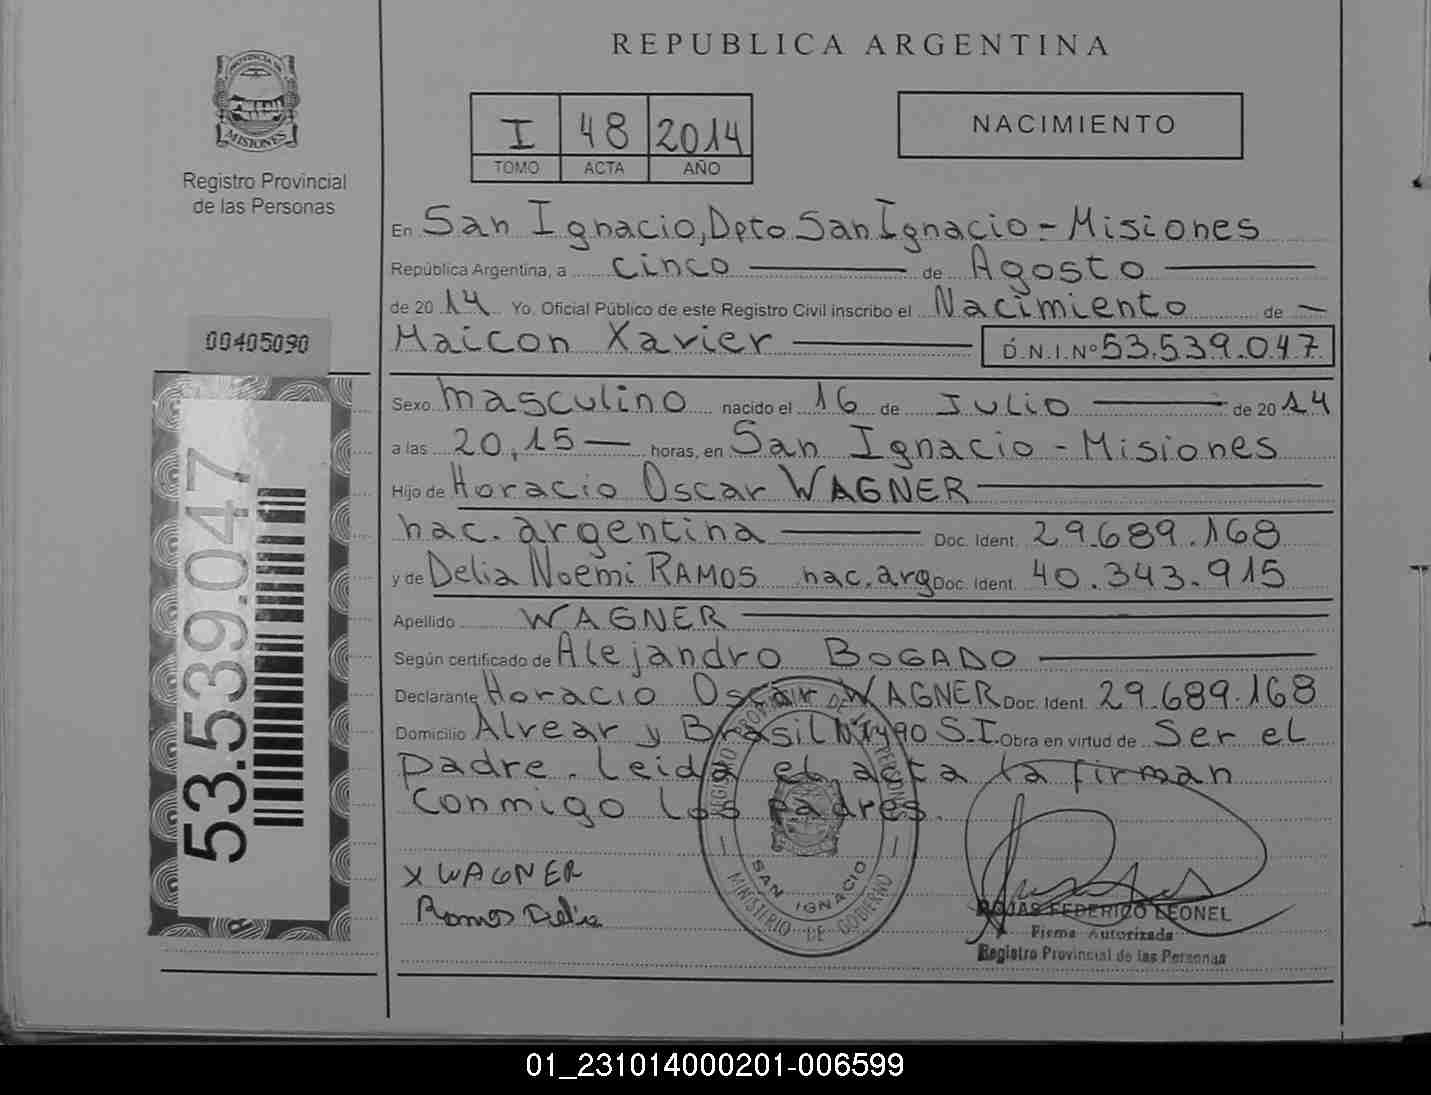 REPUBLICA ARGENTINA
PROVINCIA DE
MISIONES
Registro Provincial
de las Personas
I 48 2014
TOMO ACTA AÑO
NACIMIENTO
En San Ignacio, Dpto San Ignacio - Misiones
República Argentina, a cinco de Agosto
de 2014 Yo. Oficial Público de este Registro Civil inscribo el Nacimiento de
Maicon Xavier D.N.I.Nº 53.539.047
00405090
Sexo masculino nacido el 16 de JULIO de 2014
a las 20,15 horas, en San Ignacio - Misiones
Hijo de Horacio Oscar WAGNER
nac. argentina Doc. Ident. 29.689.168
y de Delia Noemi RAMOS nac. arg Doc. Ident. 40.343.915
Apellido WAGNER
Según certificado de Alejandro BOGADO
Declarante Horacio Oscar WAGNER Doc. Ident. 29.689.168
Domicilio Alvear y Brasil Nº1490 S.I. Obra en virtud de Ser el
padre. Leida el acta la firman
conmigo los padres.
53.539.047
X WAGNER
Ramos Delia
REGISTRO PROVINCIAL DE LAS PERSONAS
SAN IGNACIO
MINISTERIO DE GOBIERNO
ROJAS FEDERICO LEONEL
Firma Autorizada
Registro Provincial de las Personas
01_231014000201-006599